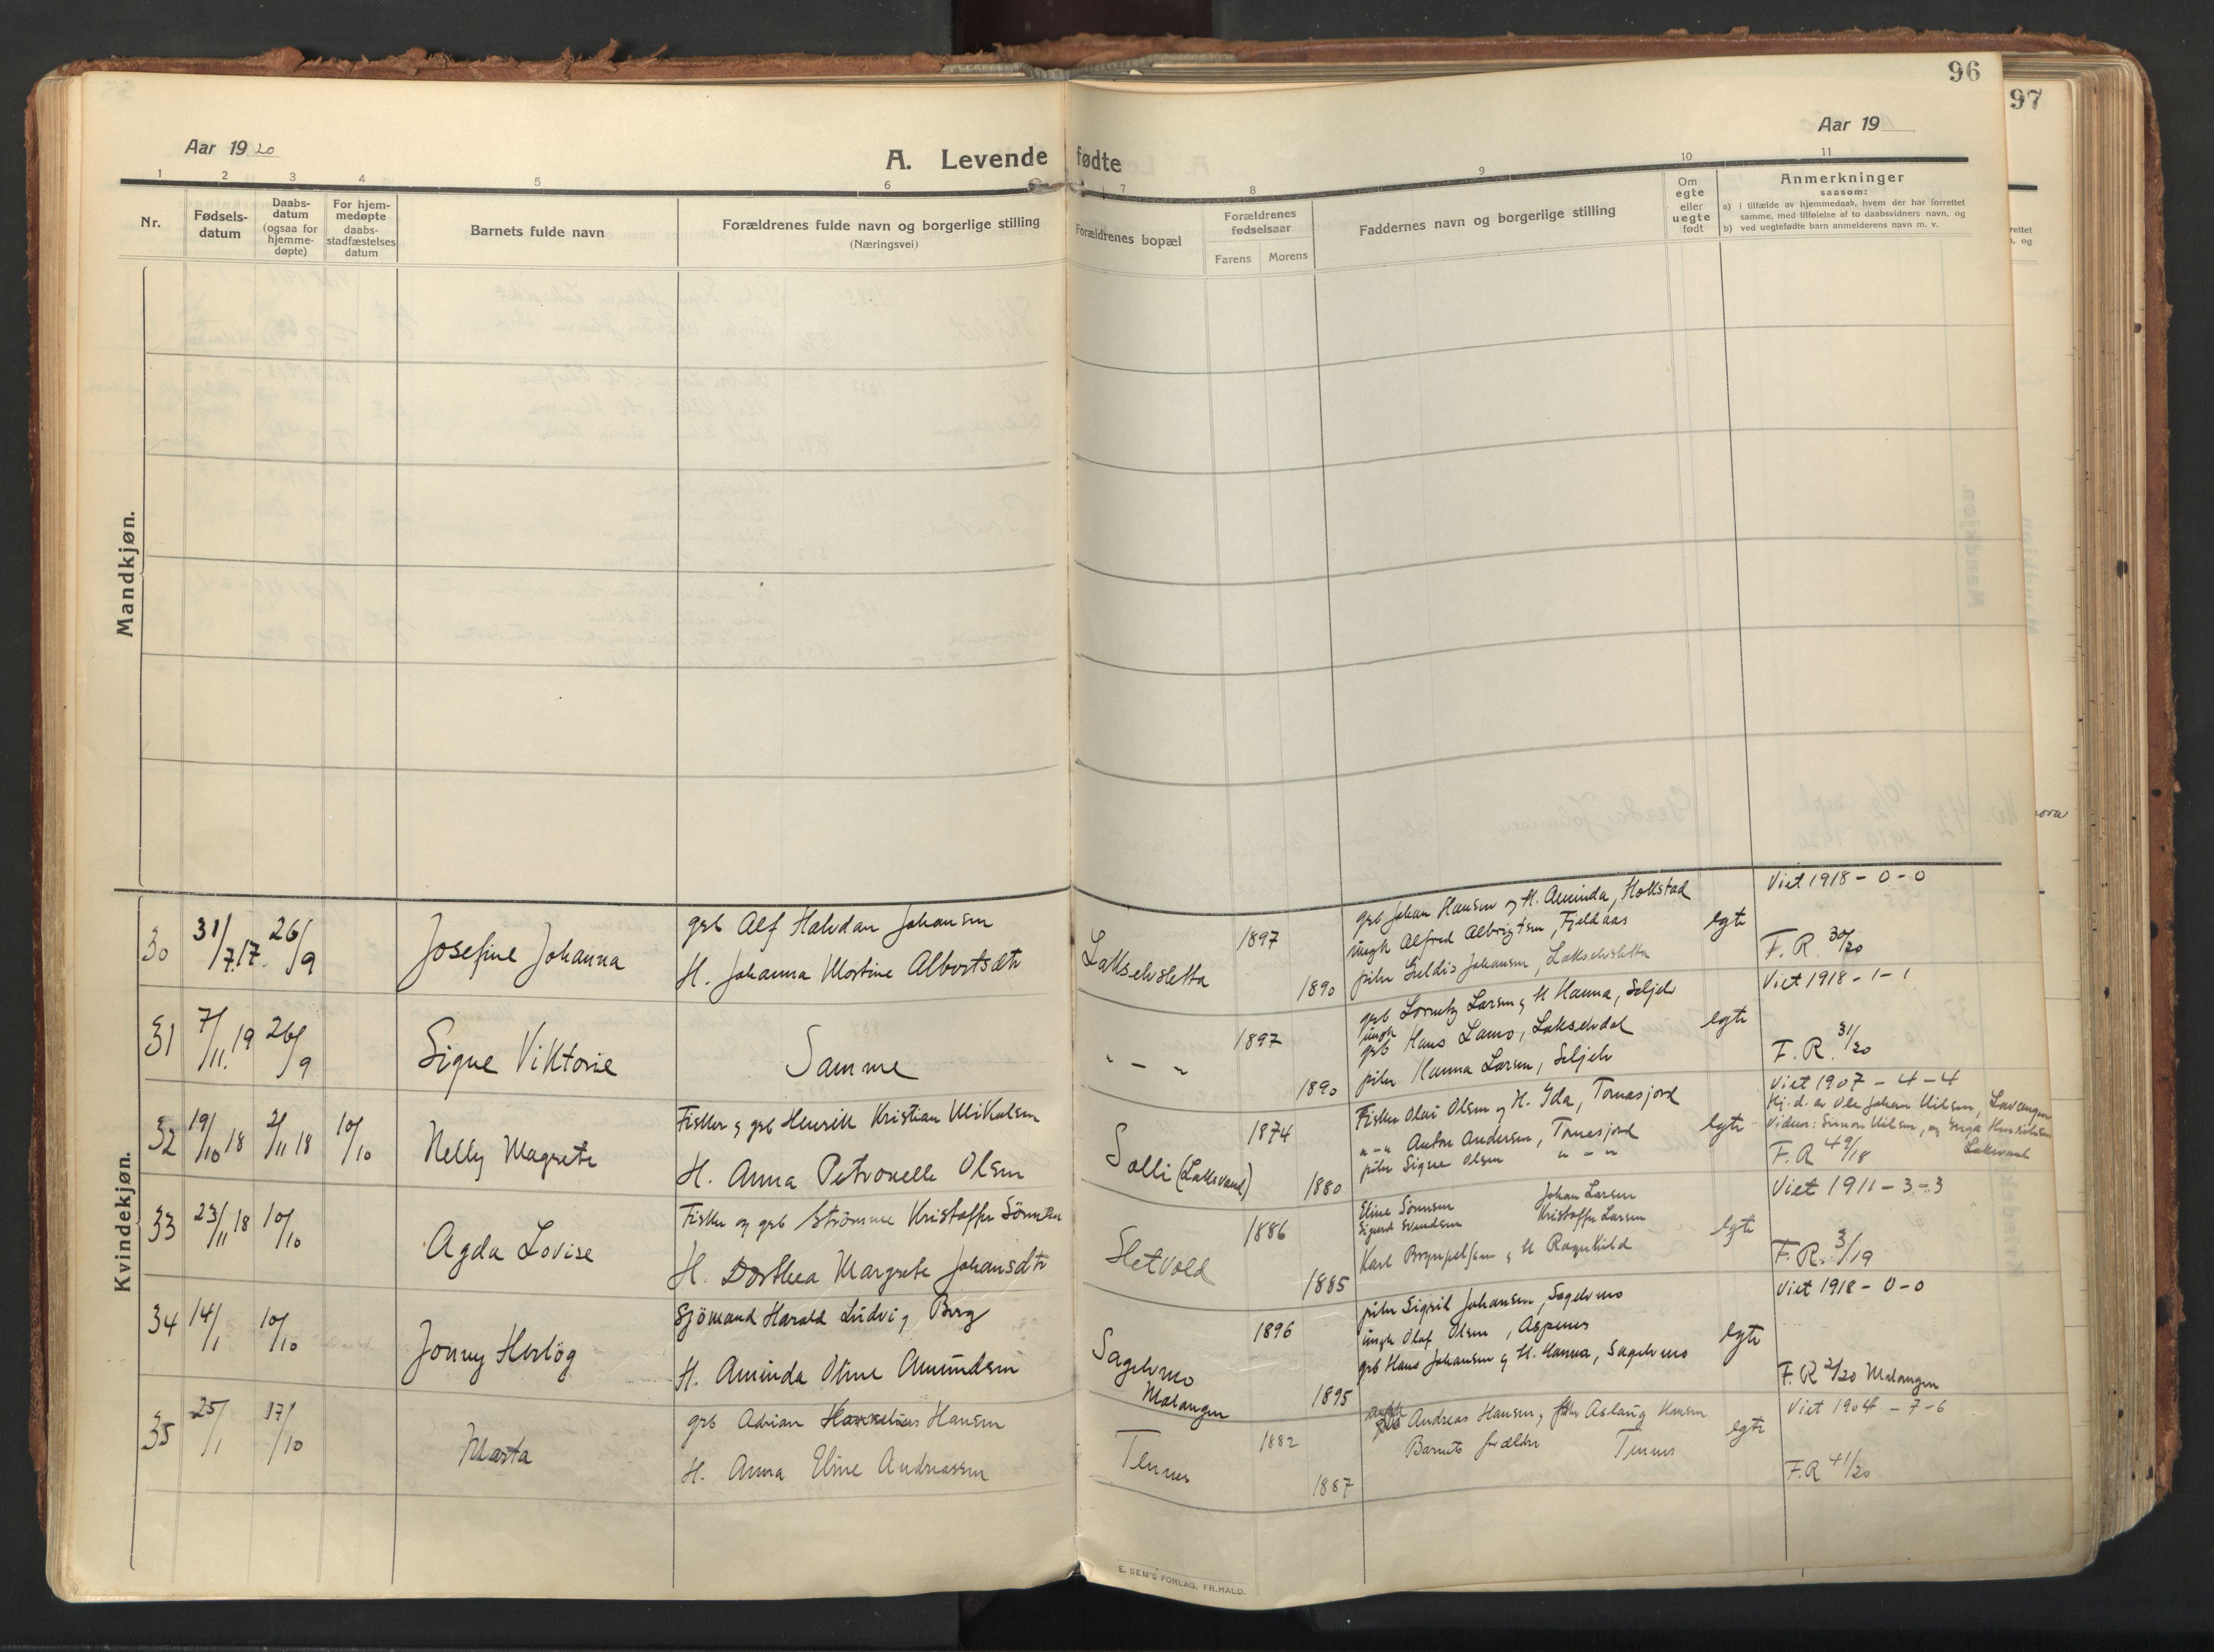 96
97
Aar 1920
A. Levende fødte
Aar 19
1 2 3 4 5 6 7 8 9 10 11
Nr.
Fødsels-
datum
Daabs-
datum
(ogsaa for
hjemme-
døpte)
For hjem-
medøpte
daabs-
stadfæstelses
datum
Barnets fulde navn
Forældrenes fulde navn og borgerlige stilling
(Næringsvei)
Forældrenes bopæl
Forældrenes
fødselsaar
Farens Morens
Faddernes navn og borgerlige stilling
Om
egte
eller
uegte
født
Anmerkninger
saasom:
a) i tilfælde av hjemmedaab, hvem der har forrettet
samme, med tilføielse af to daabsvidners navn, og
b) ved uegtefødte barn anmelderens navn m. v.
Mandkjøn.
Kvindekjøn.
30 31/7.17. 26/9
Josefine Johanna
grb Alf Halvdan Johansen
H. Johanna Martine Albertsdtr
Lakselvsletta
1897
1890
grb Johan Hansen og H. Aminda, Hokstad
ungk Alfred Albrigtsen, Fjeldaas
piken Johansen, Lakselvsletta
egte
Viet 1918 - 0 - 0
F. R. 30/20
31 7/11.19 26/9
Signe Viktorie
Samme
" - "
1897
1890
grb Larsen og H Hanna, Seljelv
ungk
grb Hans Lamo, Lakselvdal
piken Hanna Larsen, Seljelv
egte
Viet 1918 - 1 - 1
F. R. 31/20
32 19/10 18 2/11 18 10/10
Nelly Magrete
Fisker og grb Henrik Kristian Nikolsen
H. Anna Petronelle Olsen
Solli (Laksvand)
1874
1880
Fisker Olai Olsen og H. Ida, Tomasjord
" - " Anton Andersen, Tomasjord
piken Signe Olsen " - "
egte
Viet 1907 - 4 - 4
Hj. d. av Ole Johan Nilsen, Lavangen
Vidner: Simon Nilsen, og Inga Henriksen
Laksvand
F. R 49/18
33 23/11 18 10/10
Agda Lovise
Fisker og grb Strømme Kristoffer Sørensen
H. Dorthea Margrete Johansdtr
Sletvold
1886
1885
Eline Sørensen Johan Larsen
Sigurd Svendsen Kristoffer Larsen
Karl Brynjulfsen og H Ragnhild
egte
Viet 1911 - 3 - 3
F. R. 3/19
34 14/1 10/10
Jonny Herløg
Sjømand Harald Ludvig Berg
H. Aminda Oline Amundsen
Sagelvmo
Malangen
1896
1895
piken Sigrid Johansen, Sagelvmo
ungk Olaf Olsen, Aspenes
grb Hans Johansen og H. Hanna, Sagelvmo
egte
Viet 1918 - 0 - 0
F. R 2/20 Malangen
35 25/1 17/10
Marta
grb Adrian Hansen
H. Anna Eline Andreassen
Tennes
1882
1887
Andreas Hansen, Aslaug Hansen
Barnets forældre Tennes
egte
Viet 1904 - 7 - 6
F. R 41/20
E. SEM'S FORLAG. FR.HALD.